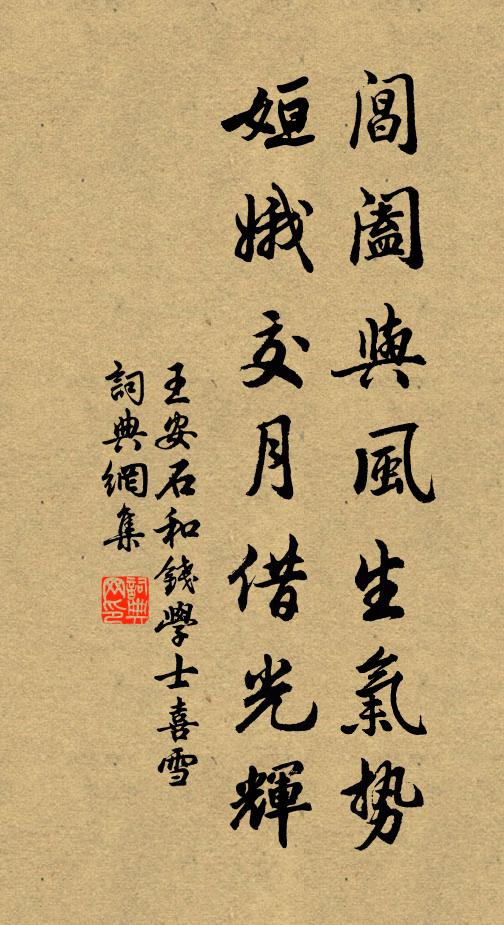 閶闔與風生氣勢
姮娥交月借光輝
王安石和錢學士喜雪
詞典網集
詞典網印